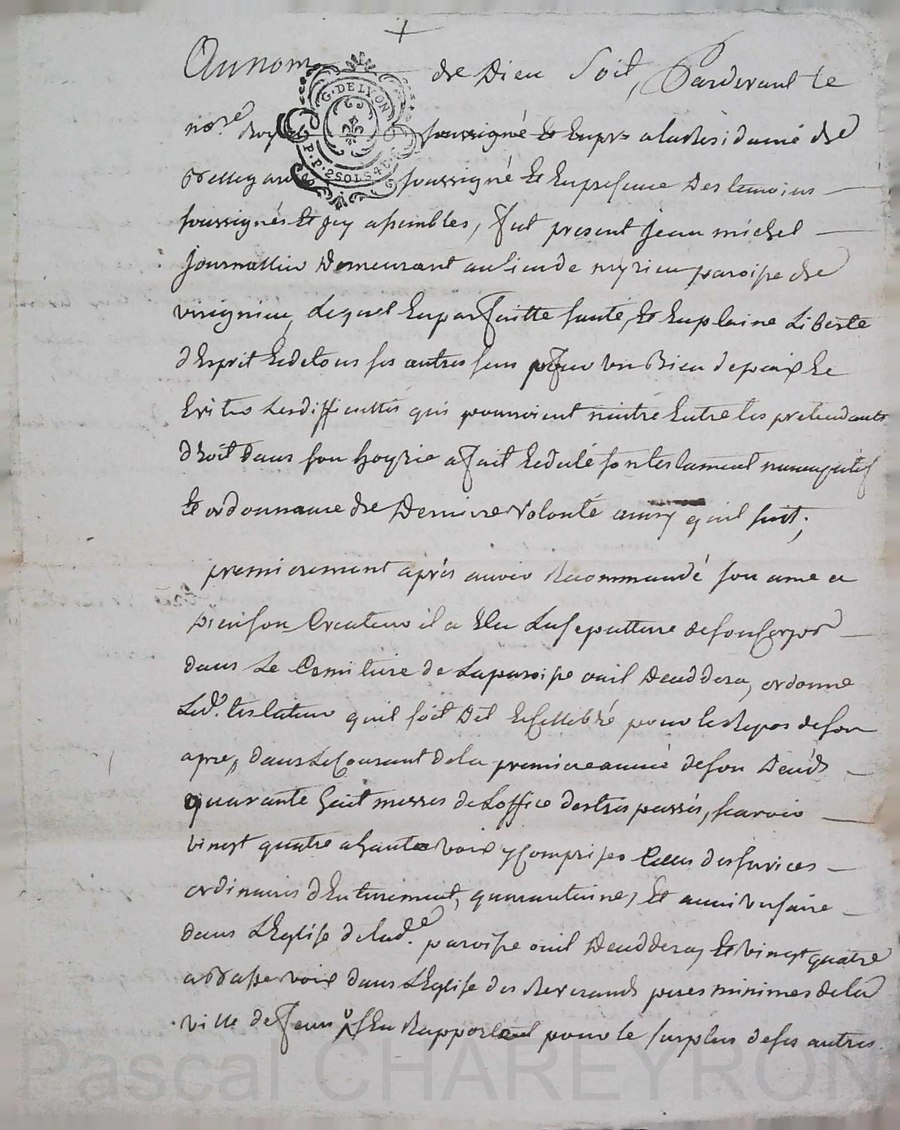 Au nom de Dieu Soit, Pardevant le
G. DE LYON
P. P. 2 SOLS 4 D.
no.re Roy soussigné Et a la Residance de
Bellegar soussigné Et En presence Des temoins
soussignés Et appembles, fut present jean michel
journallier Demeurant au lieu de myrieu paroisse de
virignieu, Lequel En parfaitte santé, Et En plaine Liberté
d'Esprit Et de tous ses autres sens pour un Bien de paix Et
Eviter Les difficultés qui pourroient naitre Entre les pretendants
droit dans son hoyrie a fait Et dicté son testament nuncupatif
Et ordonnance de Derniere volonté ainsy quil suit;
premierement apres avoir Recommandé son ame a
Dieu son Createur il a Elu La sepulture de son Corps
dans Le Cemitiere de La paroisse ou il Deceddera, ordonne
Led. testateur quil soit Dit Et cellebré pour le Repos de son
ame, dans Le Courant de la premiere année de son Deceds
quarante huit messes de L'office des trespassés, scavoir
vingt quatre a haute voix y Comprises Celles des services
ordinaires d'Enterrement, quarantaine, Et anniversaire
dans L'Eglise de lad.e paroisse ou il Deceddera, Et vingt quatre
a Basse voix dans L'Eglise des Reverands peres minimes de la
ville de feurs s'En Rapportant pour le surplus de ses autres
Pascal CHAREYRON